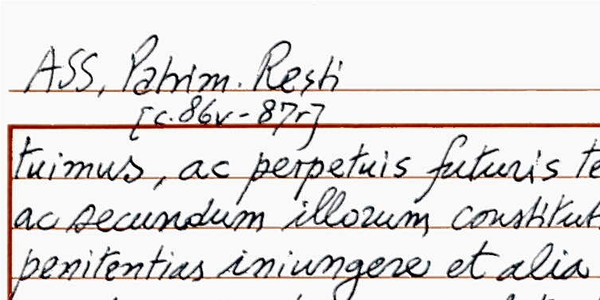 ASS, Patrim. Resti
[c.86v-87r]
tuimus, ac perpetuis futuris te
ac secundum illorum constitut
penitentias iniungere et alia